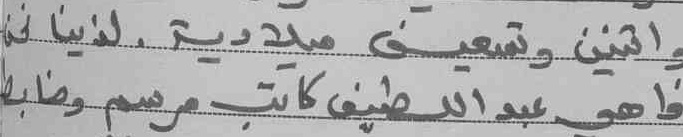 واثنين وتسعين ميلادية. لدينا نحن
فاهي عبد اللطيف كاتب مرسم وضابط